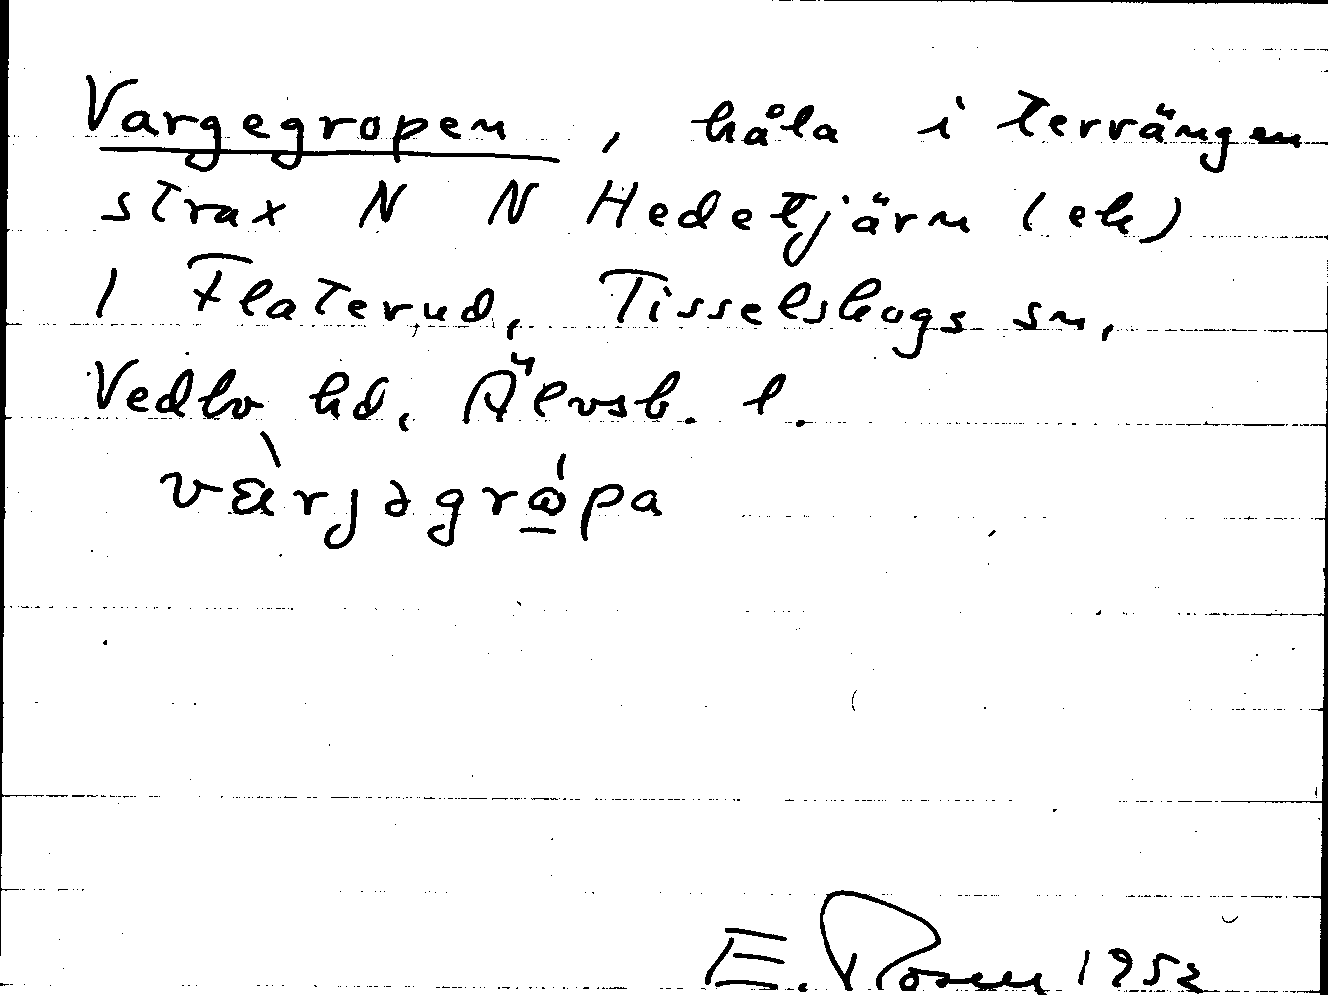 Vargegropen, håla i terrängen
strax N N Hedetjärn (ek)
i Flaterud, Tisselskogs sn,
Vedbo hd, Älvsb. l.
värjəgrɷ́pa
E. Rosen 1952